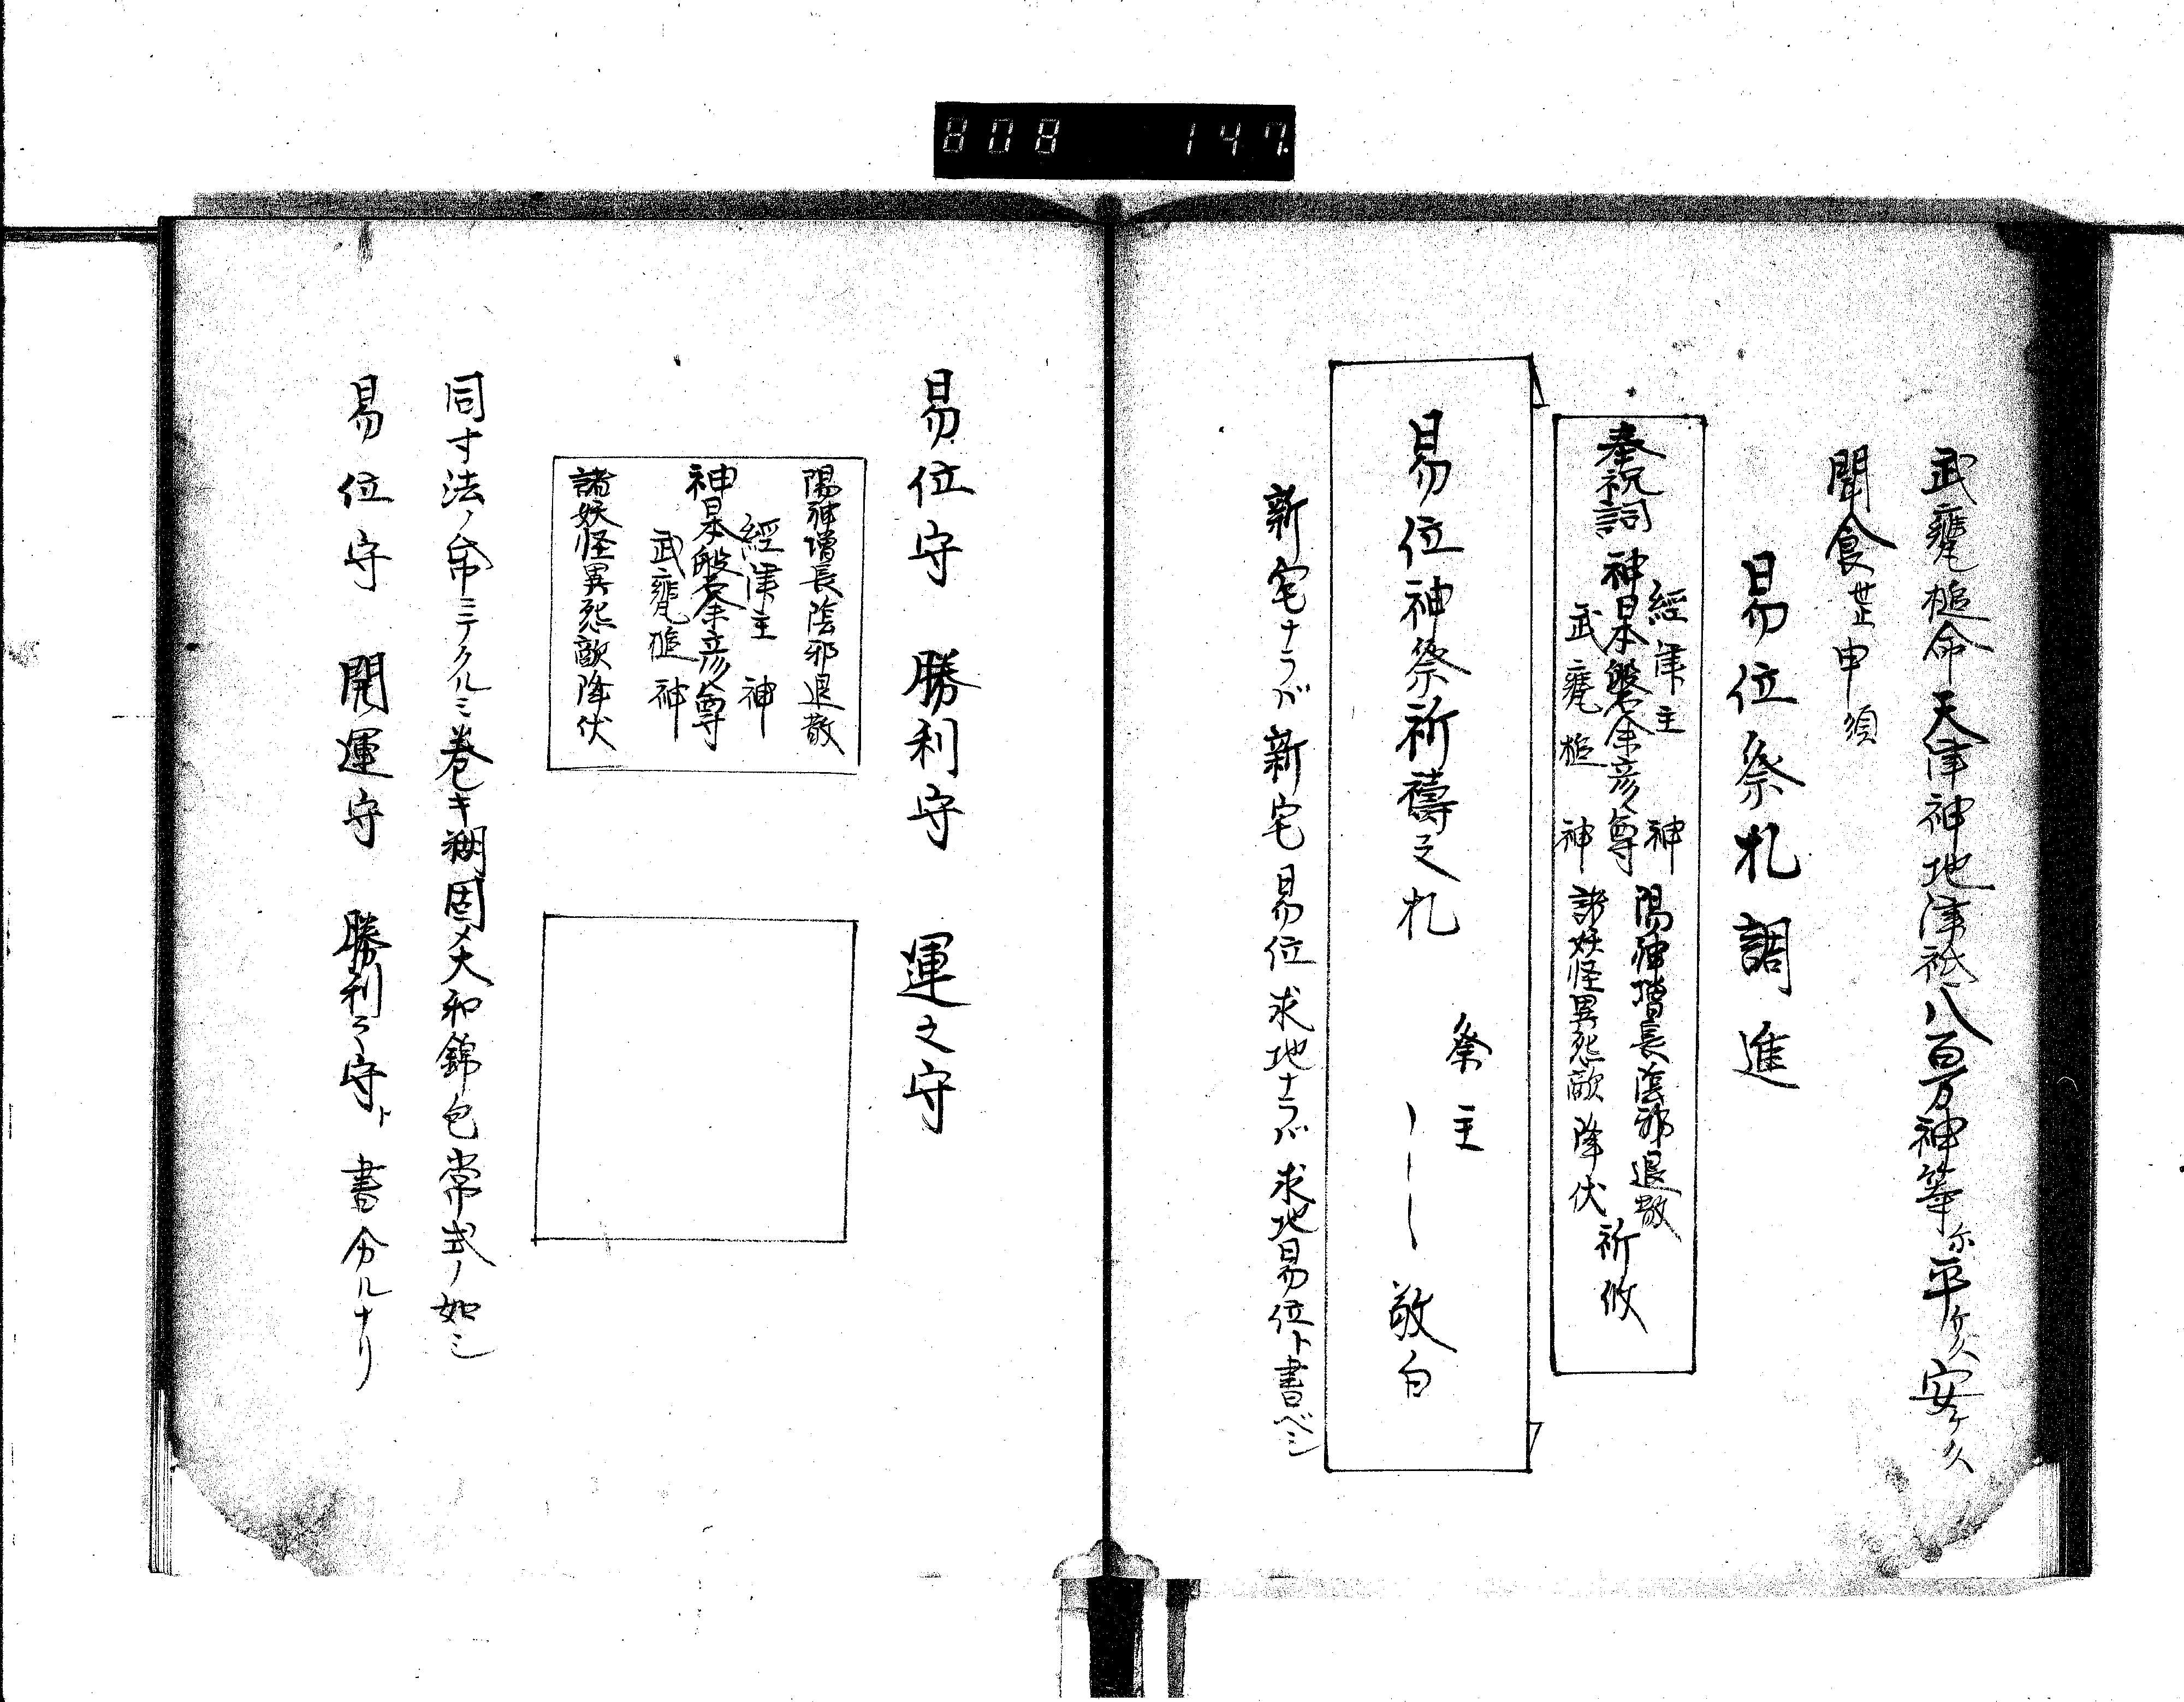 808 147
武甕槌命天津神地津祇八百万神等尓平ケ久安ケ久
聞食世止申須
易位祭札調進
奉祝詞
經津主神
神日本磐余彦尊
武甕槌神
陽神増長陰邪退散
諸妖怪異怨敵降伏
祈攸
易位神祭祈禱之札
祭主
敬白
新宅ナラバ新宅易位求地ナラバ求地易位ト書ベシ
易位守 勝利守 運之守
陽神増長陰邪退散
經津主神
神日本磐余彦尊
武甕槌神
諸妖怪異怨敵降伏
同寸法ノ帋ミテクルミ巻キ糊固メ大和錦包常式ノ如シ
易位守 開運守 勝利之守ト書分ルナリ